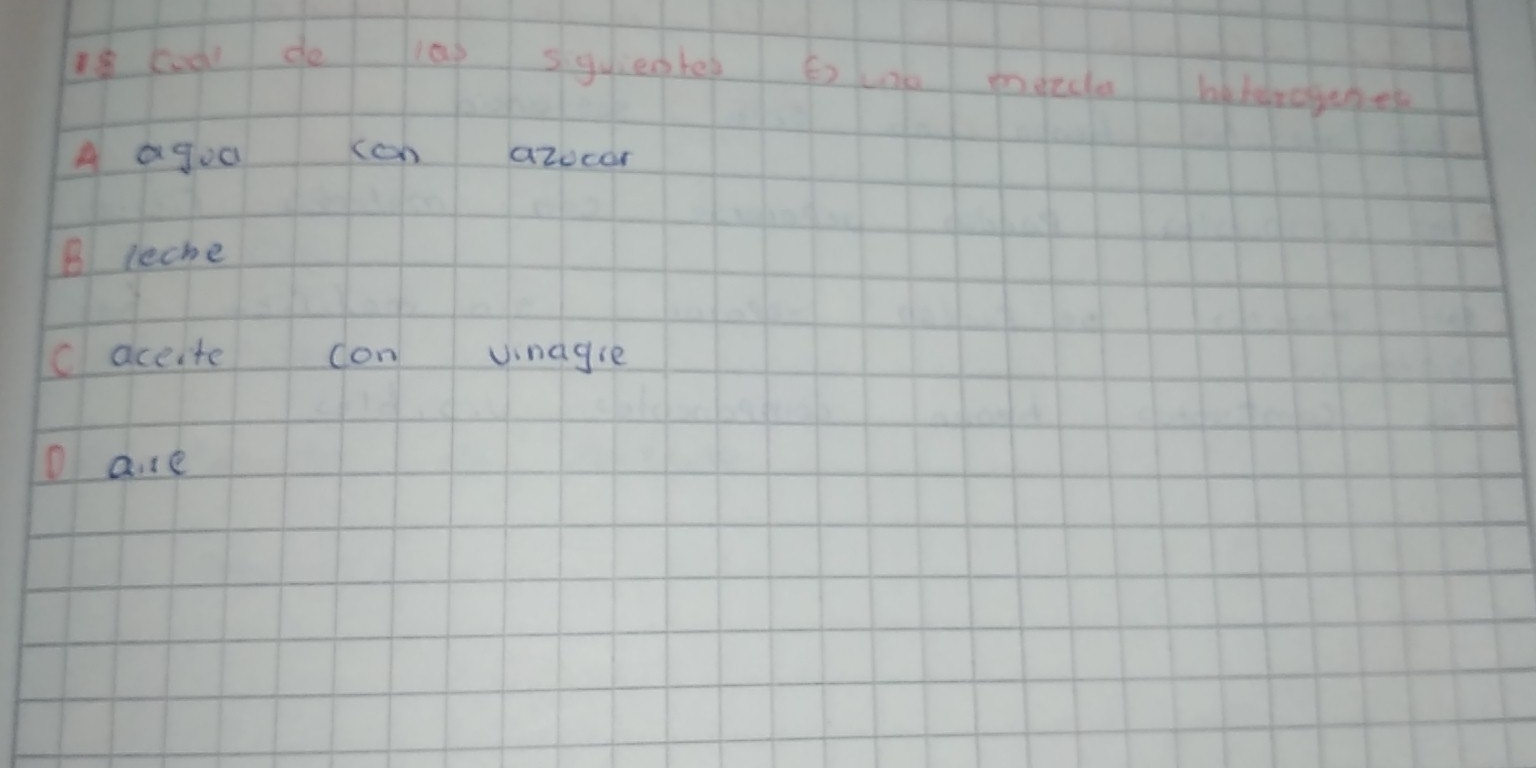 18 Cual de las siguientes Es una mezcla heterogenea
A agua con azucar
B leche
C aceite con vinagre
D aire